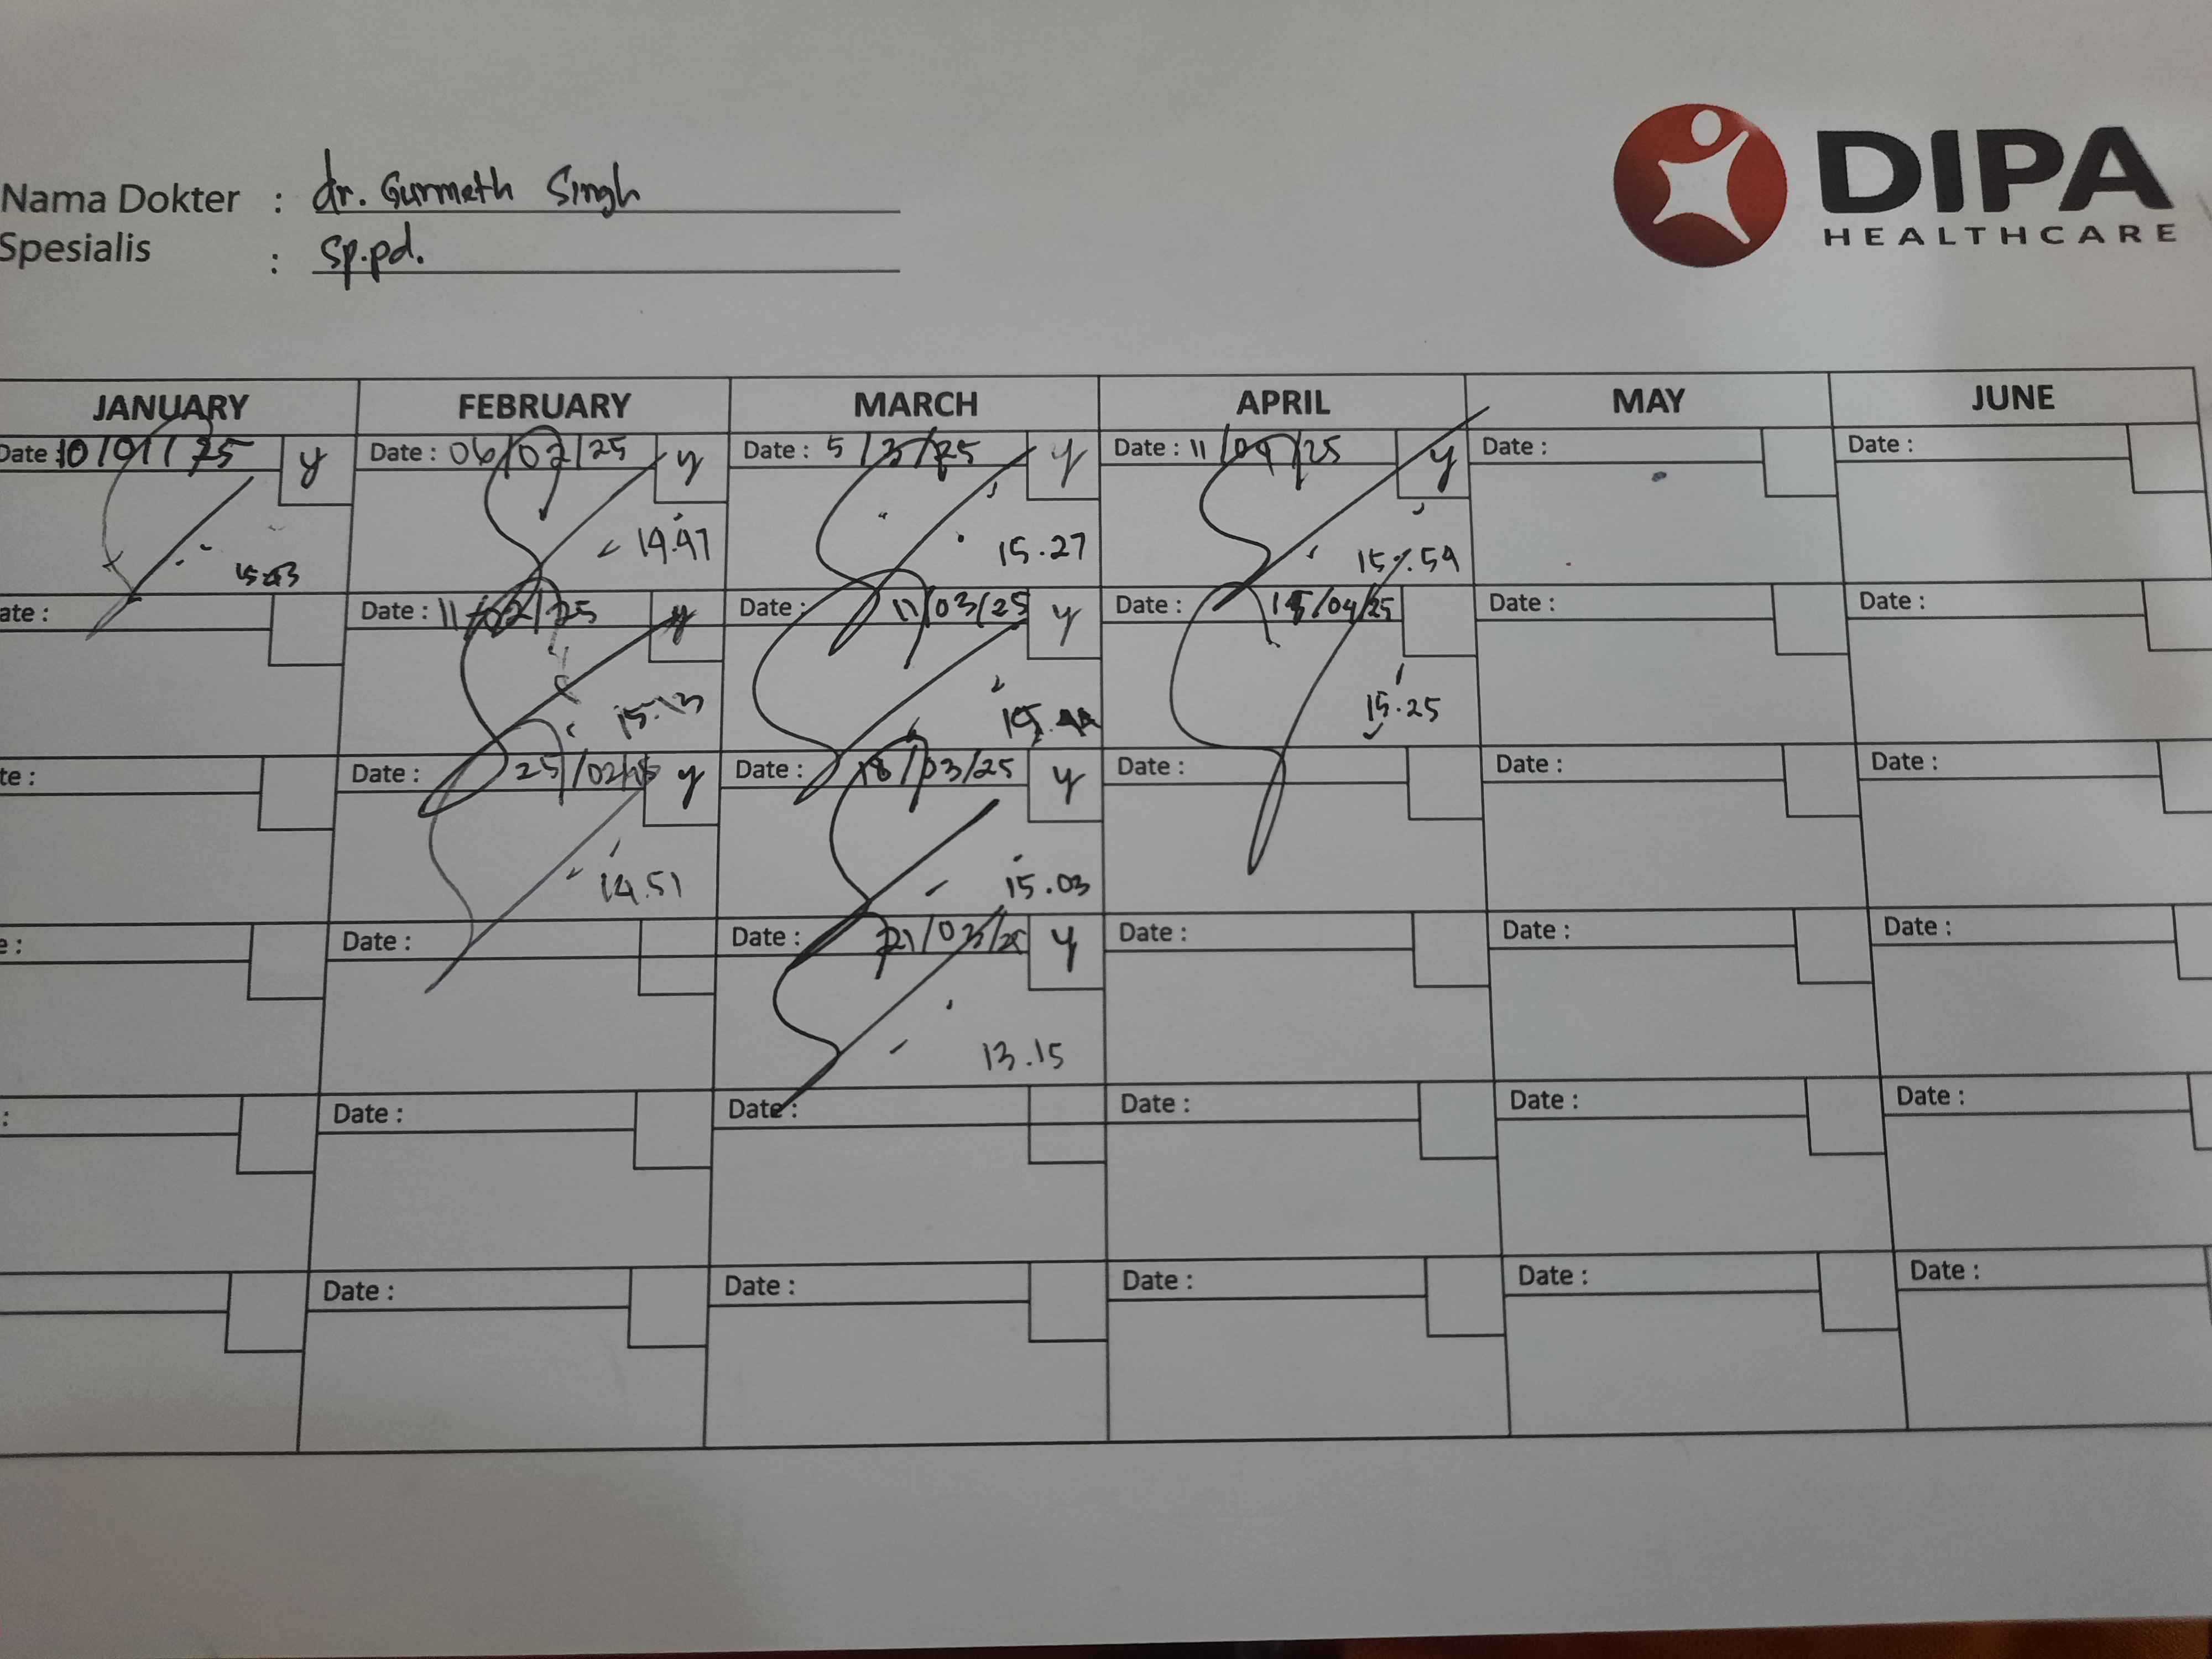 Nama Dokter : dr. Gurmeth Singh
Spesialis : Sp.pd.
DIPA
HEALTHCARE
JANUARY FEBRUARY MARCH APRIL MAY JUNE
Date 10/01/25 y Date : 06/02/25 y Date : 5/3/25 y Date : 11/04/25 y Date : Date :
14.47 15.27 15.59
ate : Date : 11/02/25 y Date : 11/03/25 y Date : 15/04/25 Date : Date :
15.13 15.25
te : Date : 25/02/25 y Date : 18/03/25 y Date : Date : Date :
14.51 15.03
e : Date : Date : 21/03/25 y Date : Date : Date :
13.15
: Date : Date : Date : Date : Date :
Date : Date : Date : Date : Date :